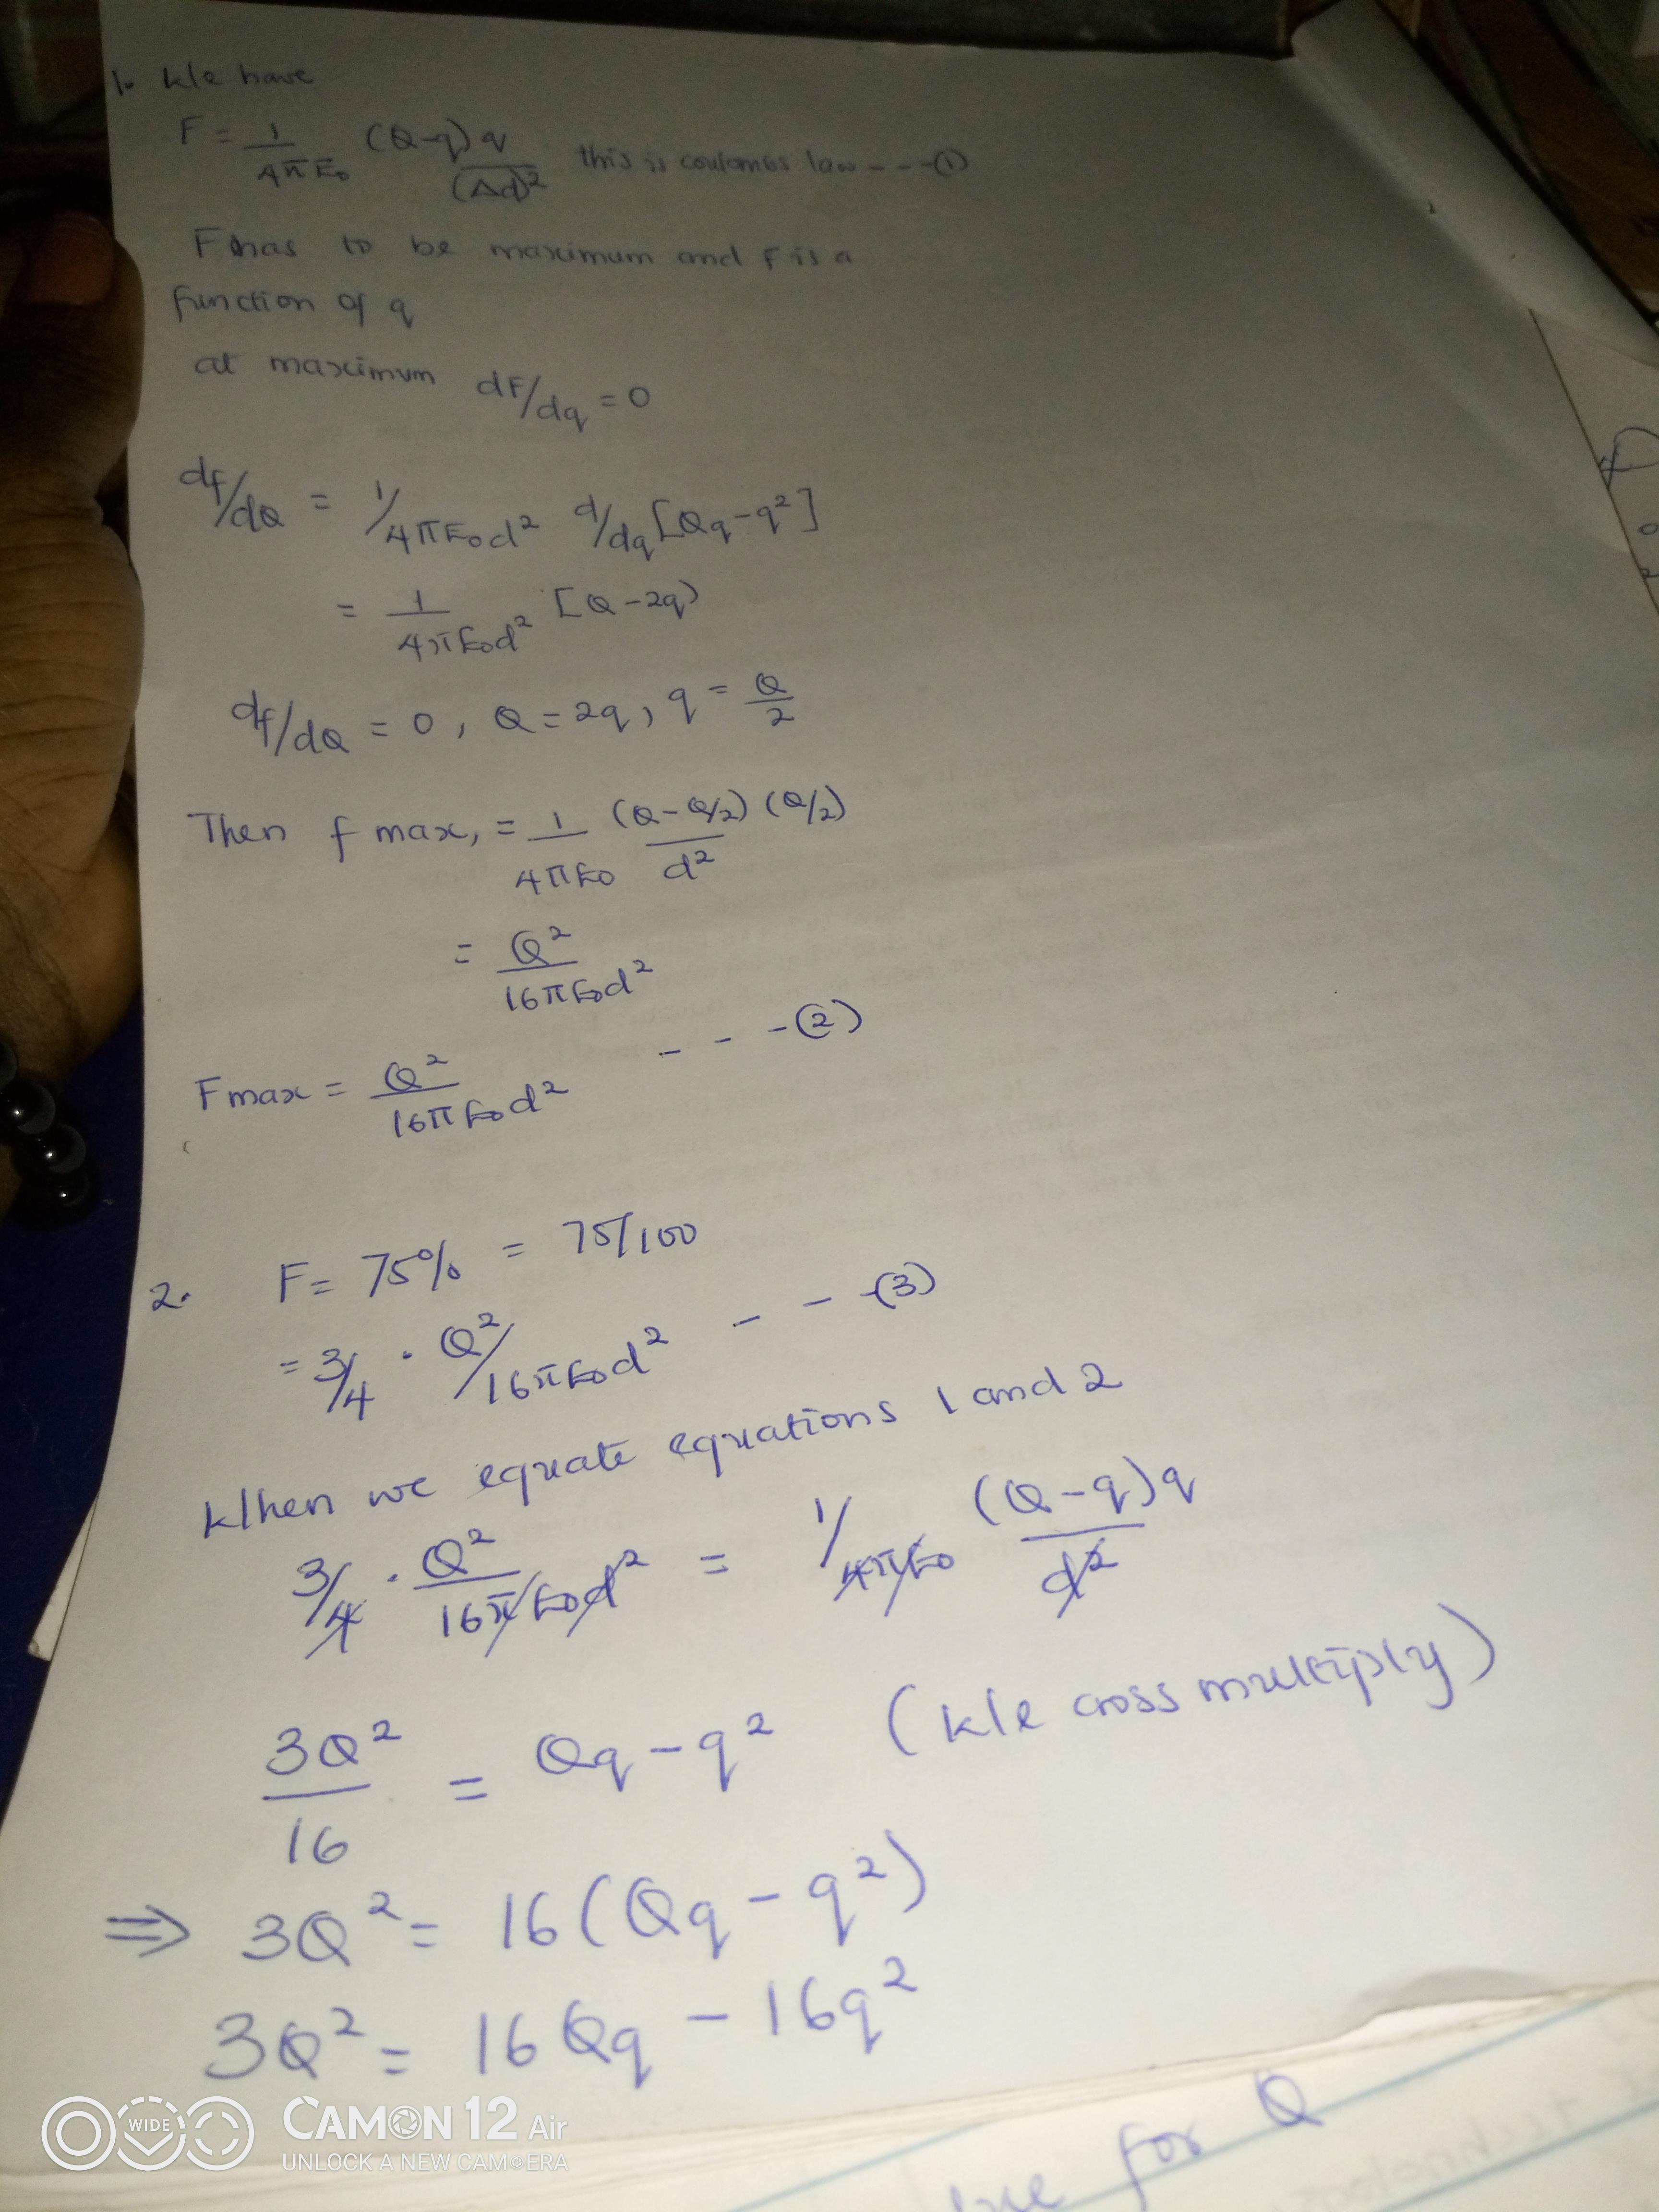 1. We have
F = 1/4πE₀ (Q-q)q/(Δd)² this is coulombs law - - -(1)
F has to be maximum and F is a
function of q
at maximum dF/dq = 0
df/dQ = 1/4πE₀d² d/dq [Qq-q²]
= 1/4πE₀d² [Q-2q)
df/dQ = 0, Q = 2q, q = Q/2
Then f max, = 1/4πE₀ (Q-Q/2) (Q/2)/d²
= Q²/16πE₀d²
Fmax = Q²/16πE₀d² - - -(2)
2. F = 75% = 75/100
= 3/4 . Q²/16πE₀d² - - -(3)
When we equate equations 1 and 2
3/4 . Q²/16πE₀d² = 1/4πE₀ (Q-q)q/d²
3Q²/16 = Qq-q² (We cross multiply)
⇒ 3Q² = 16(Qq-q²)
3Q² = 16Qq - 16q²
for Q
WIDE
CAMON 12 Air
UNLOCK A NEW CAMERA